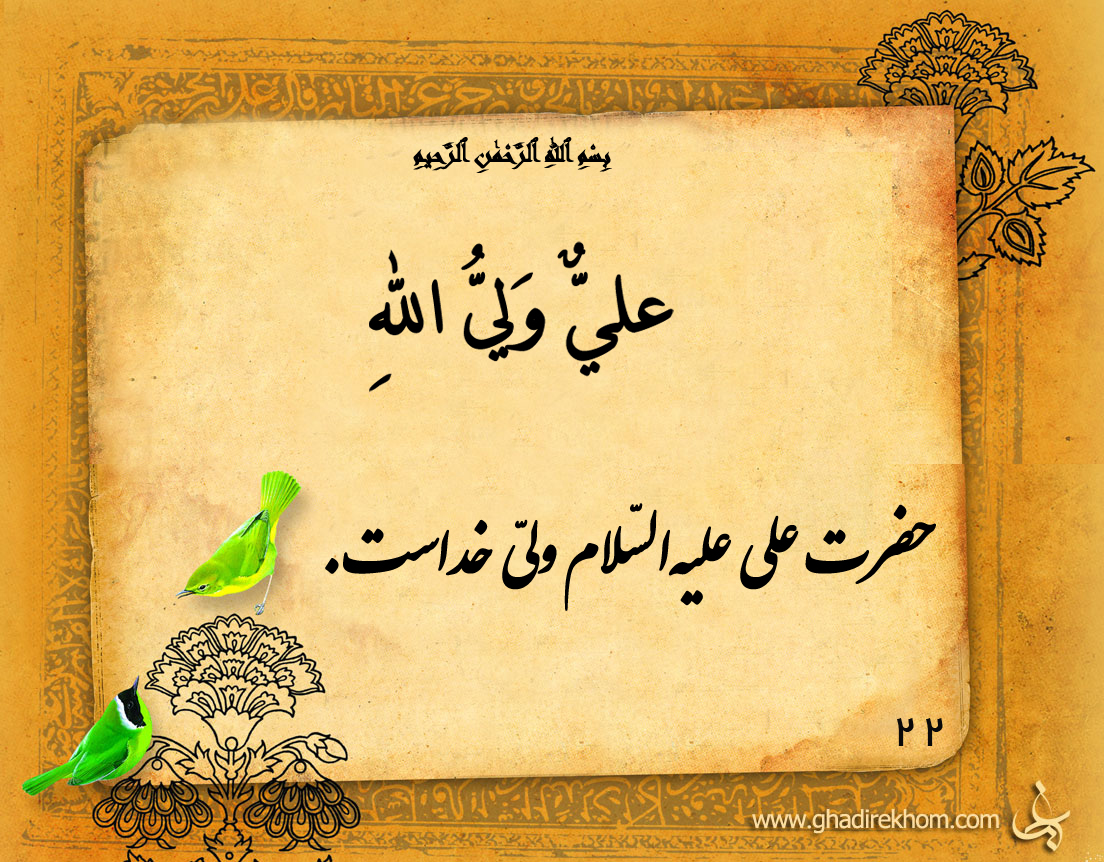 بِسْمِ ٱللَّهِ ٱلرَّحْمَٰنِ ٱلرَّحِيمِ
عليٌّ وَليُّ اللّٰهِ
حضرت علی علیه‌السّلام ولیّ خداست.
۲۲
www.ghadirekhom.com